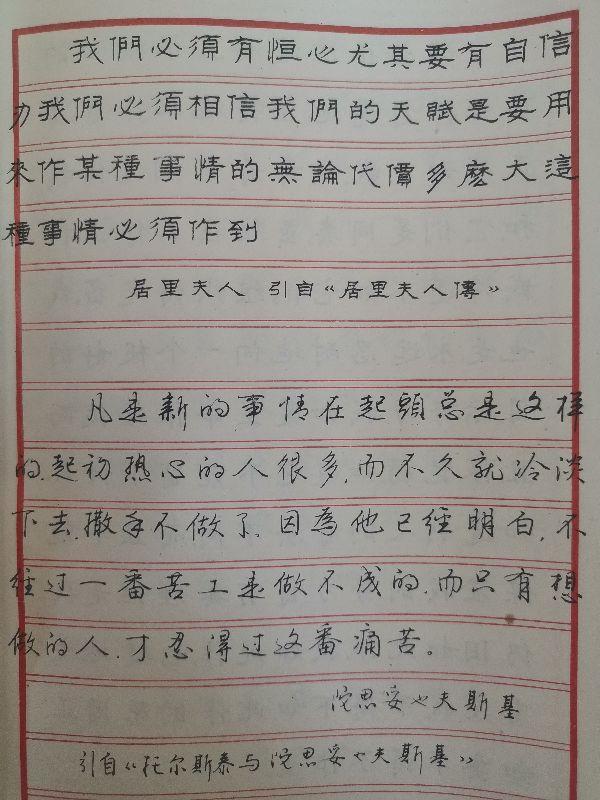 我們必須有恒心尤其要有自信
力我們必須相信我們的天賦是要用
來作某種事情的無論代價多麽大這
種事情必須作到
居里夫人 引自《居里夫人傳》
凡是新的事情在起頭总是这样
的,起初热心的人很多,而不久就冷淡
下去,撒手不做了,因為他已经明白,不
经过一番苦工是做不成的,而只有想
做的人,才忍得过这番痛苦。
陀思妥也夫斯基
引自《托尔斯泰与陀思妥也夫斯基》